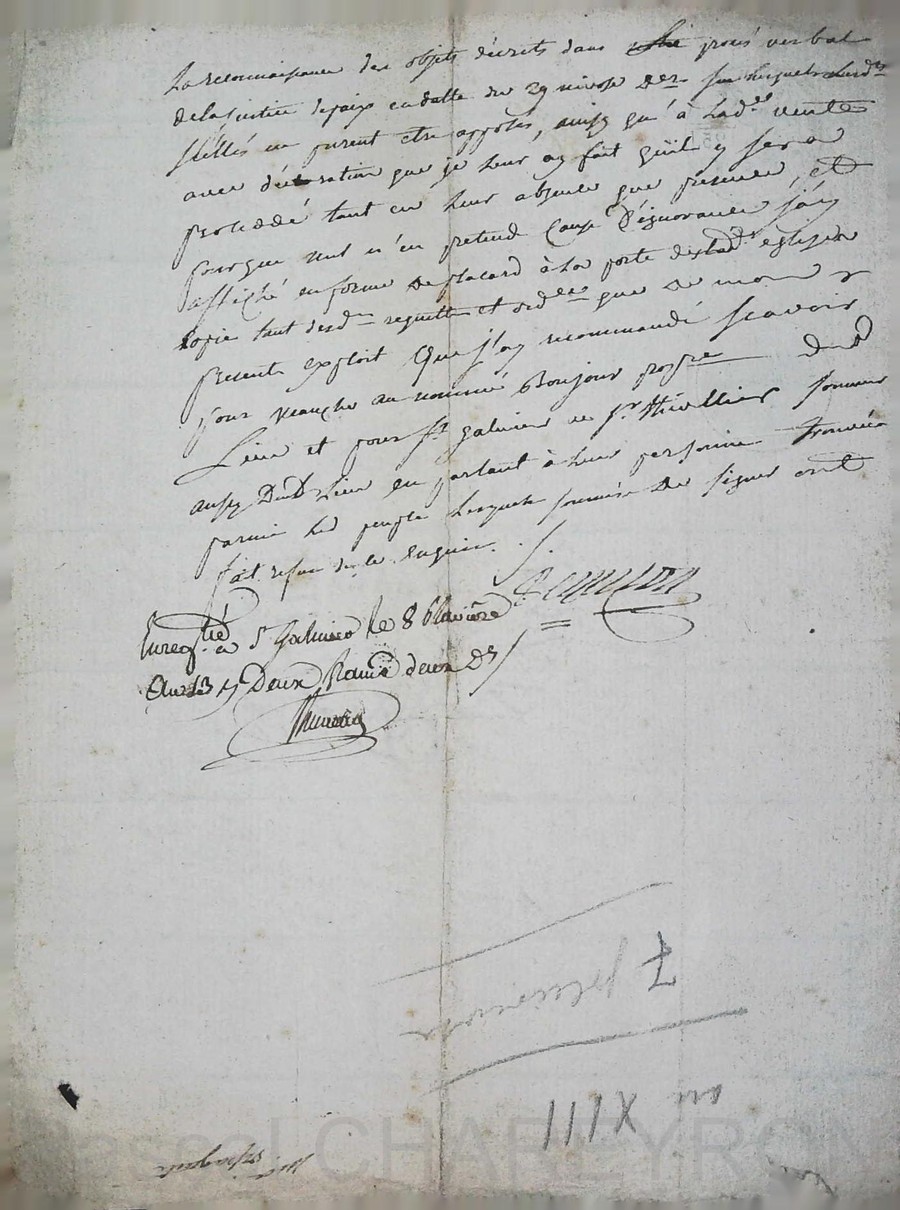 La reconnaissance des objets décrits dans procés verbal
de la justice de paix en datte du 29 nivose der sur lesquels lesds
scellés en furent etre apposés, ainsy qu'à lade vente
avec déclaration que je leur ay fait quil y sera
proceddé tant en leur absence que presence, et
pour que nul n'en pretende Cause d'ignorance j'ay
affiché en forme de placard à la porte de lad eglise
Copie tant desd requette et ordce que de mon
present exploit que j'ay recommandé scavoir
pour au nommé Bonjour propre dud
Lieu et pour St galmier au sr thivellier
aussy Dud Lieu en parlant à leur personne trouvée
parmi les peuple lesquels sommés de signer ont
fait refus de le
Enregtré a St Galmier le 8 Pluviose
an 13 Deux francs deux
7 pluviose
an XIII
CHAPEYRON